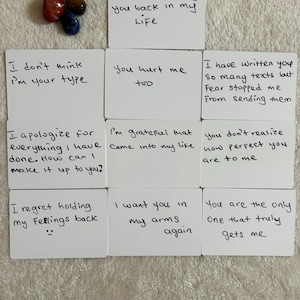 you back in my
Life
I don't think
i'm your type
You hurt me
too
I have written you
so many texts but
Fear stopped me
from sending them
I apologize for
everything I have
done. How can I
make it up to you?
I'm grateful that
came into my life
you don't realize
how perfect you
are to me
I regret holding
my feelings back
I want you in
my arms
again
You are the only
One that truly
gets me